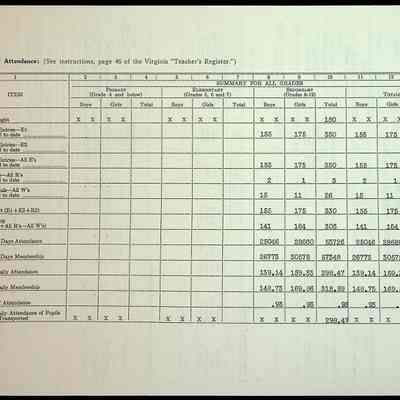 Attendance: (See instructions, page 46 of the Virginia "Teacher's Register.")
1 2 3 4 5 6 7 8 9 10 11 12
SUMMARY FOR ALL GRADES
ITEMS PRIMARY ELEMENTARY SECONDARY
(Grade 4 and below) (Grades 5, 6 and 7) (Grades 8-12) Totals
Boys Girls Total Boys Girls Total Boys Girls Total Boys Girls
X X X X X X X X X X X X 180 X X X X
Entries—E1
to date 155 175 330 155 175
Entries—E2
to date
Entries—All E's
to date 155 175 330 155 175
—All R's
to date 2 1 3 2 1
—All W's
to date 15 11 26 15 11
(E1+E2+R2) 155 175 330 155 175
+All R's—All W's) 141 164 305 141 164
Days Attendance 25046 28680 53726 25046
Days Membership 26773 30575 57348 26773
Daily Attendance 139.14 159.33 298.47 139.14
Daily Membership 148.73 169.86 318.59 148.73
Attendance .93 .93 .93 .93
Daily Attendance of Pupils
Transported X X X X X X X X X X X X 298.47 X X X